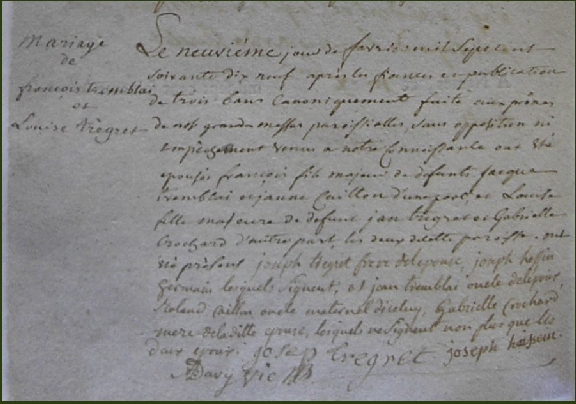 Mariage
de
françois tremblai
et
Louise Tregret
Le neuviéme jour de fevrier mil sept cent
soixante dix neuf après les fiances et publication
de trois bans canoniquement faite aux prônes
de nos grandes messes paroissialles, sans opposition ni
empêchement venus a notre connaissance ont été
epousés françois fils majeur de défunts jacque
tremblai et jeanne Caillon d'une part, et Louise
fille majeure de defunt jan tregret et Gabrielle
Crochard d'autre part, les deux de cette paroisse. ont
été présent joseph tregret frere de lepouse, joseph
germain lesquels signent, et jan tremblai oncle de lepoux,
Caillon oncle maternel diceluy, Gabrielle Crochard
mere de la ditte epouse, lesquels ne signent non plus que les
deux epoux. josep tregret joseph
Davy Vic